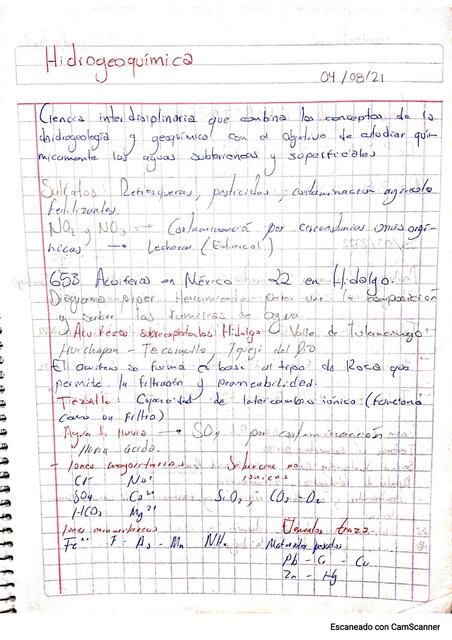 Hidrogeoquímica
04/08/21
Ciencia interdisiplinaria que combina los conceptos de la
hidrogeología y geoquímica con el objetivo de estudiar quí-
micamente las aguas subterreneas y superficiales
Sulfatos: Refresqueras, pesticidas, contaminacion agricola
Fertilizantes.
NO2 y NO3 → Contaminación por
nicas → Lecheras
653 Acuiferos en México - 22 en Hidalgo.
Diagrama piper Herramienta para ver la composición
y saber las familias de agua.
Acuiferos sobreexplotados Hidalgo Valle de Tulancingo
Huichapan - Tecozautla,
El acuifero se forma a base al tipo de Roca que
permite la filtración y permeabilidad.
Capacidad de intercambio iónico (funciona
como un filtro)
Agua de lluvia → SO4 por contaminación
lluvia ácida.
- Iones mayoritarios Sustancias no
iónicas
Cl- Na+
SO4 Ca2+ SiO2, CO2 - O2
HCO3 Mg2+
Iones minoritarios Elementos traza
Fe F- As - Mn NH4 pesados
Pb - Cr - Cu
Zn - Hg
Escaneado con CamScanner